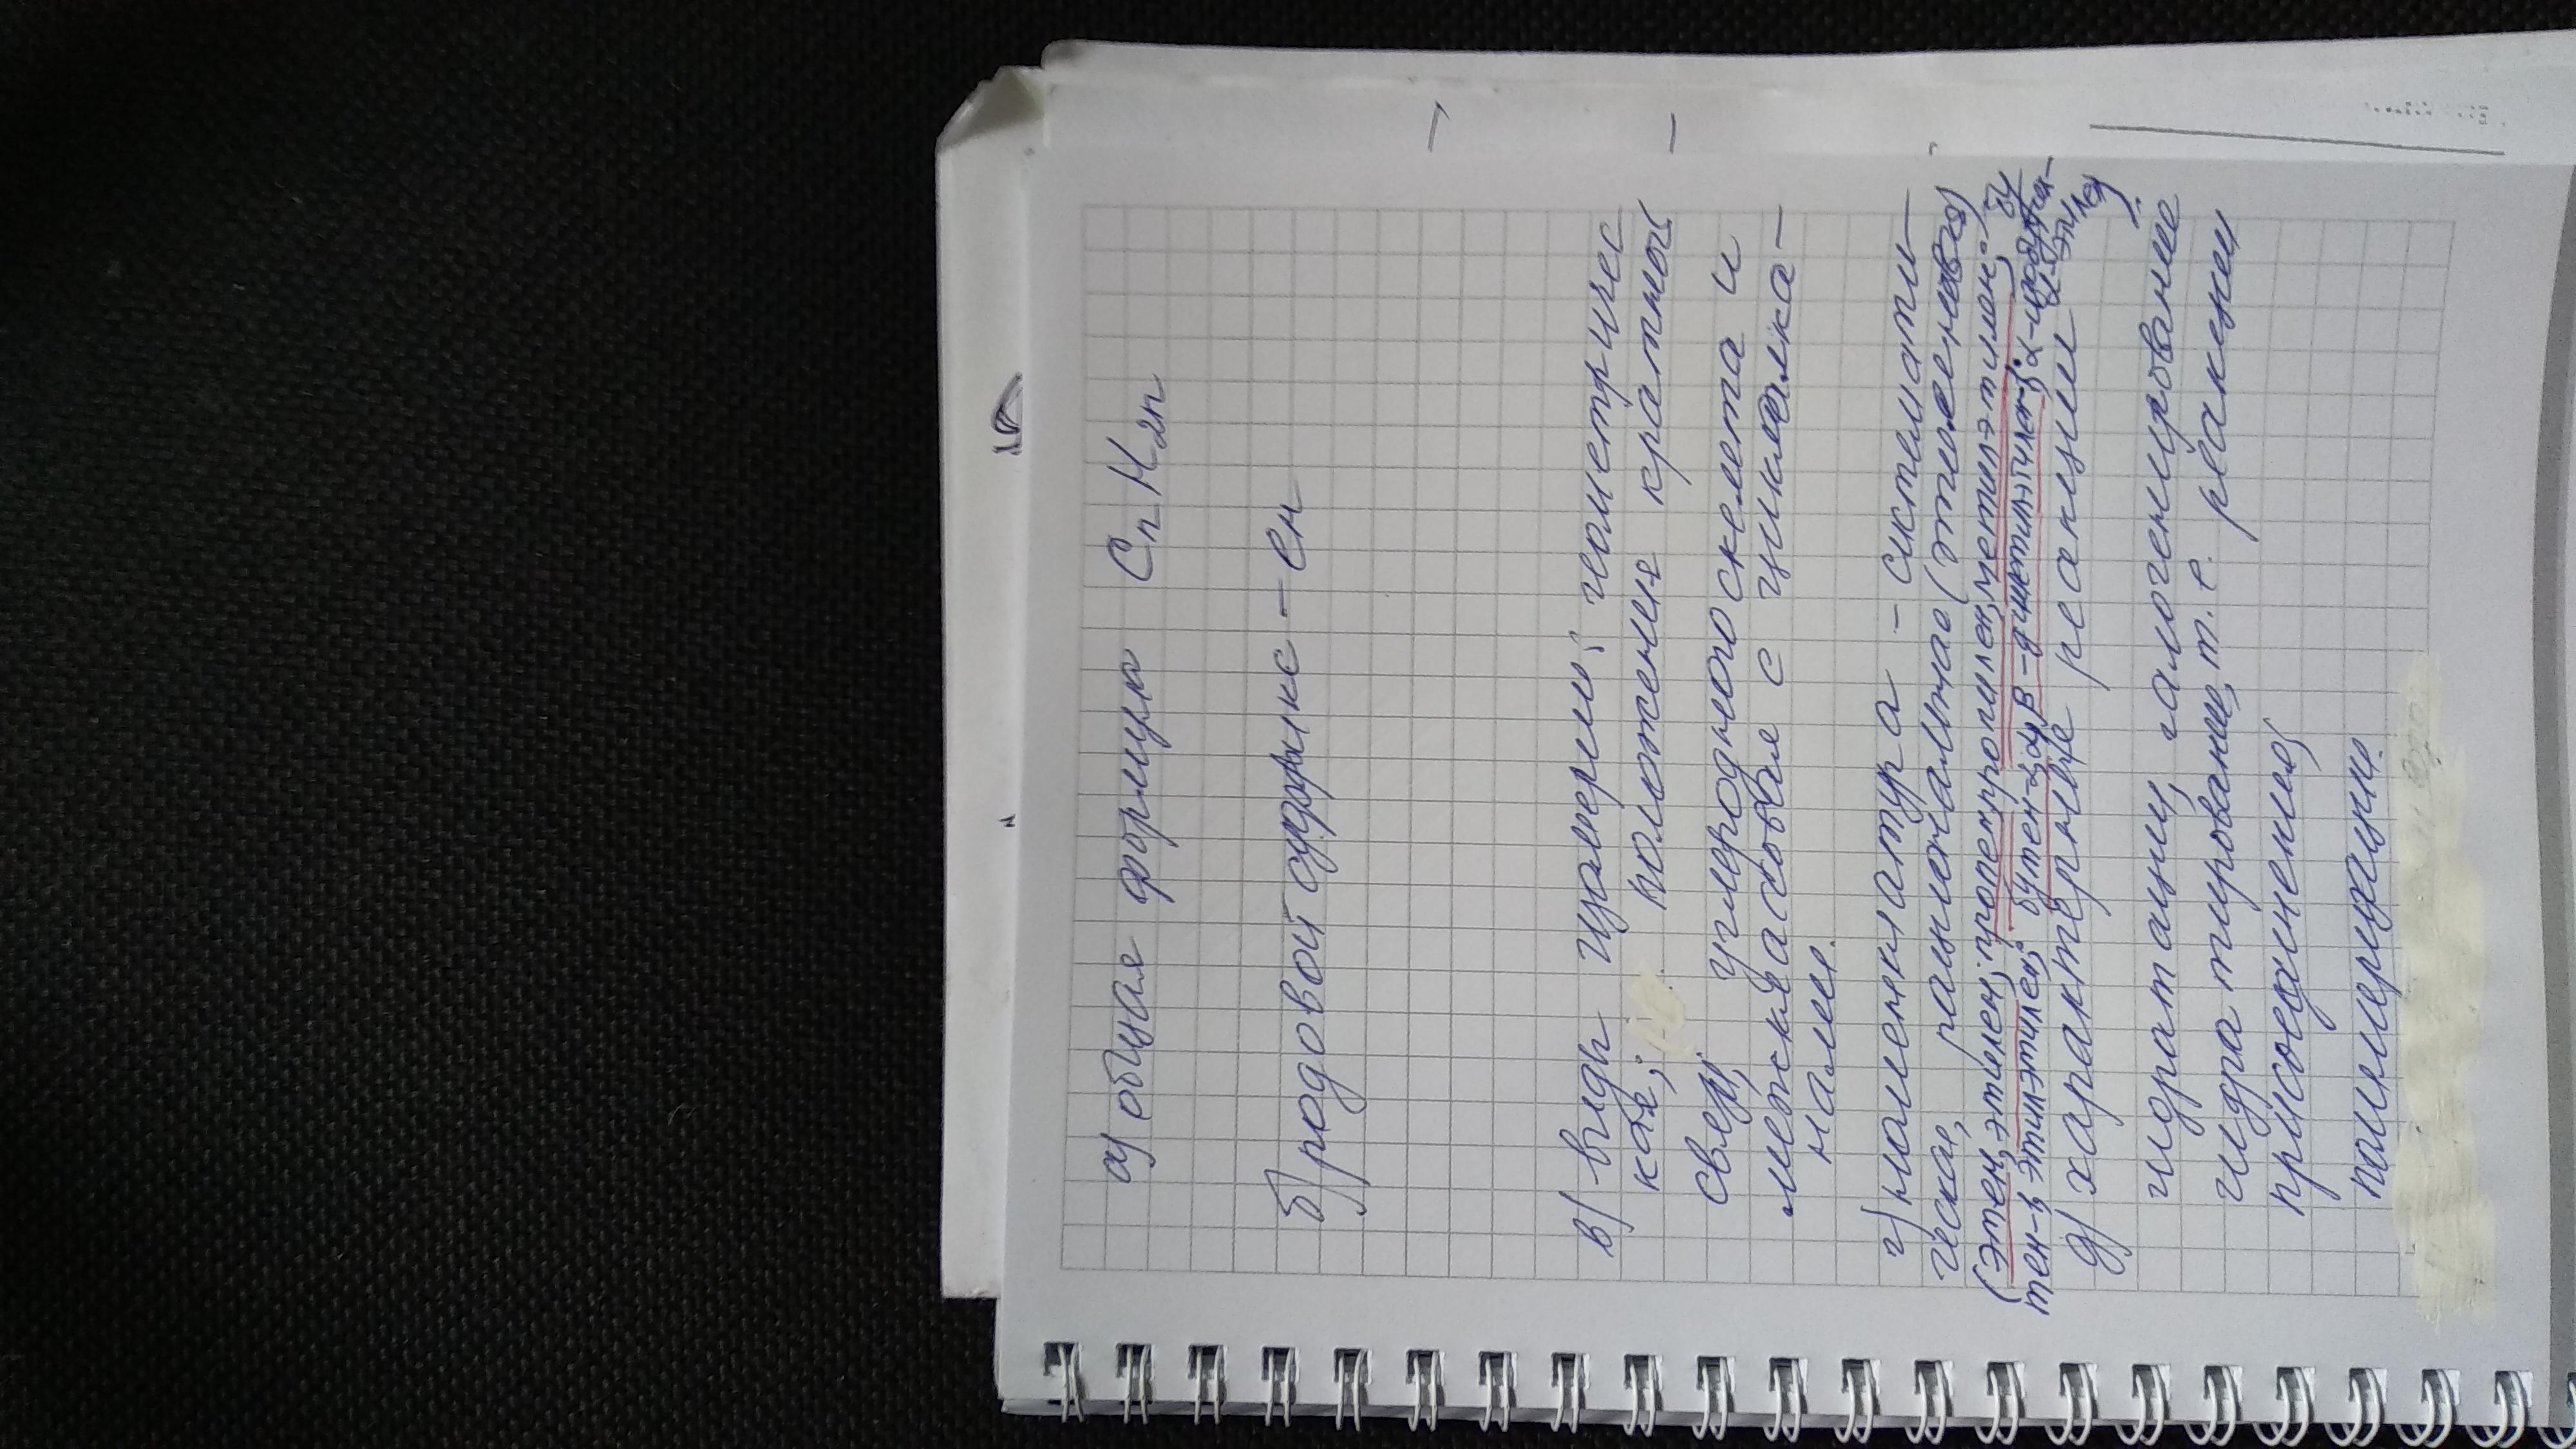 а) общая формула CnH2n
б) родовой суффикс – ен
в) виды изомерии; геометричес
кая; положения кратной
связи; углеродного скелета и
межклассовая с циклоалка-
нами.
г) номенклатура – системати-
ческая, рациональная (этиленовая)
(этен, этилен; пропен, пропилен, метилэтилен; бу
тен-1, этилэтилен; бутен-2, α, β-диметилэтилен;
д) характерные реакции
гидратации, галогенирование
гидратирование, т.е. реакции
присоединения;
полимеризации.